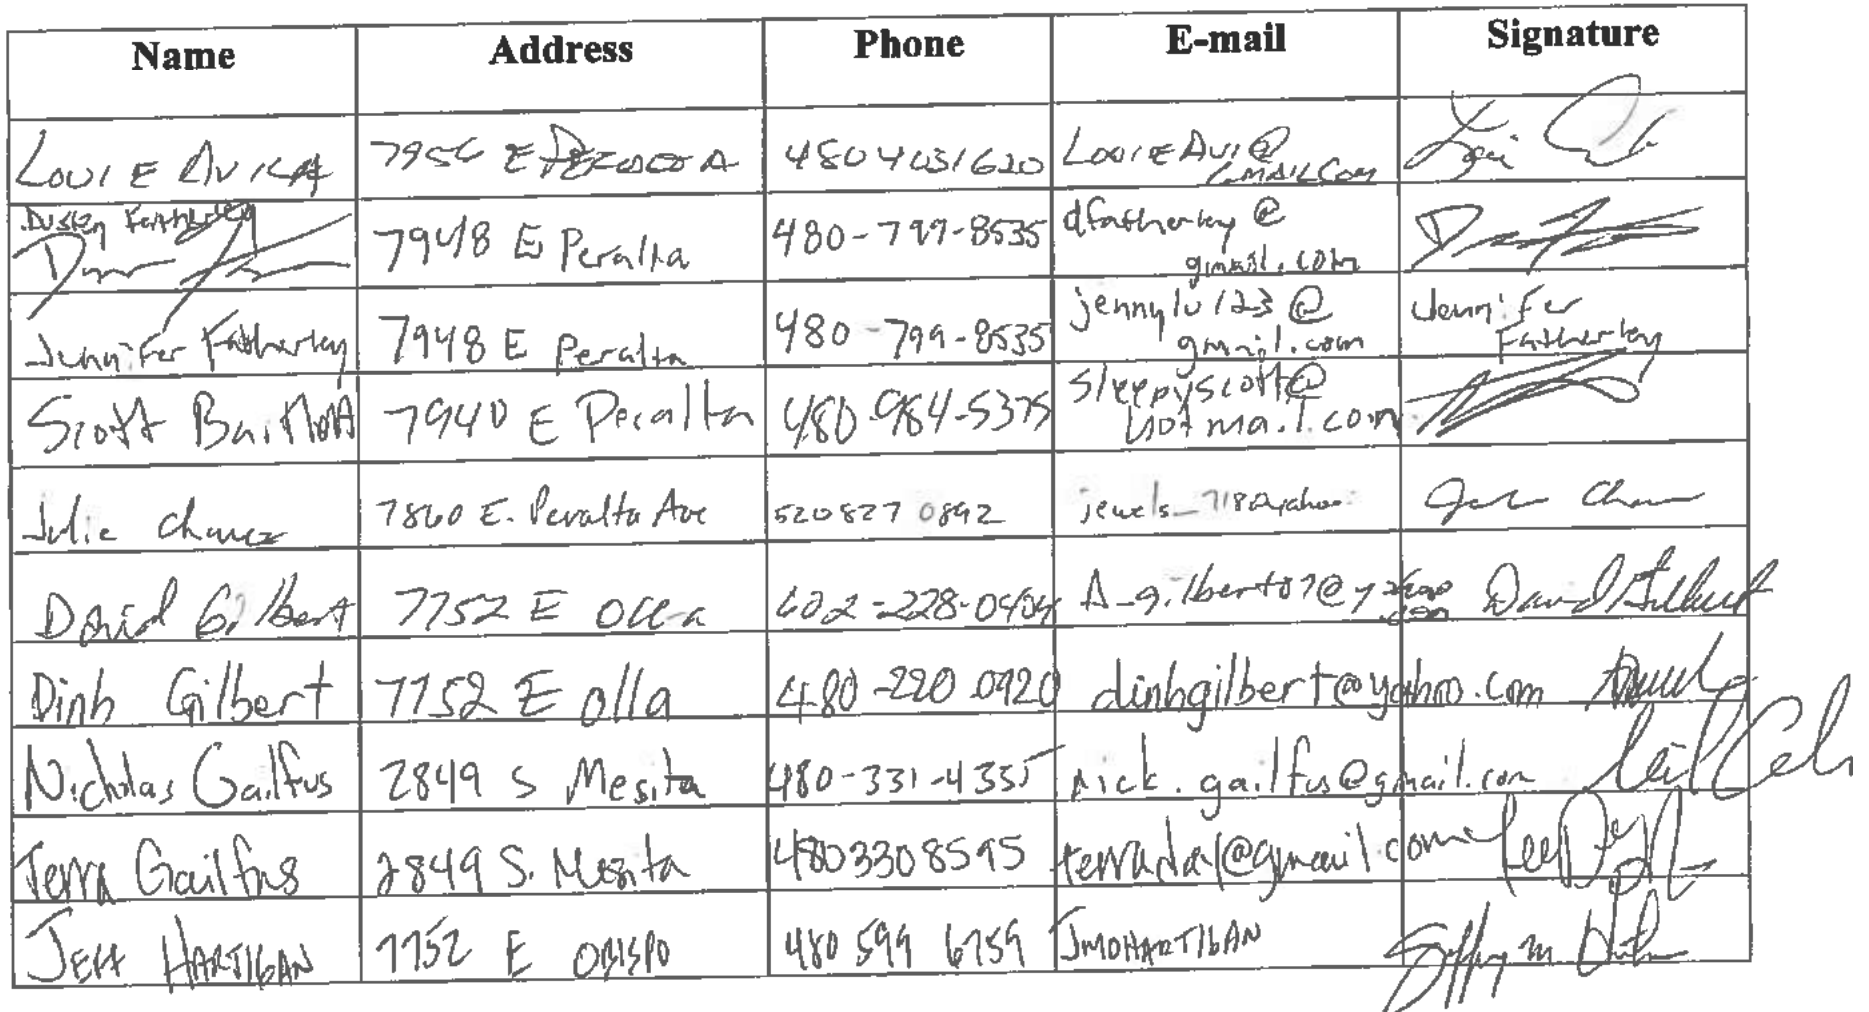 Name Address Phone E-mail Signature
LOUIE AVILA 7956 E 480 4031620 LOUIEAVI@
GMAIL.COM
Dusten Fatherley 7948 E Peralta 480-799-8535 dfatherley@
gmail.com
Jennifer Fatherley 7948 E Peralta 480-799-8535 jennylu123@ Jennifer
gmail.com Fatherley
Scott 7940 E Peralta 480-984-5375 sleepyscott@
hotmail.com
Julie Chavez 7860 E. Peralta Ave 520 827 0892 jewels_718@yahoo
David Gilbert 7752 E Olla 602-228-0404 D_gilbert07@yahoo David Gilbert
.com
Dinh Gilbert 7752 E Olla 480-220 0920 dinhgilbert@yahoo.com
Nicholas Gailfus 2849 S Mesita 480-331-4335 nick.gailfus@gmail.com
Terra Gailfus 2849 S. Mesita 4803308595 terradal@gmail.com
JEFF HARTIGAN 7752 E OBISPO 480 599 6759 JMOHARTIGAN